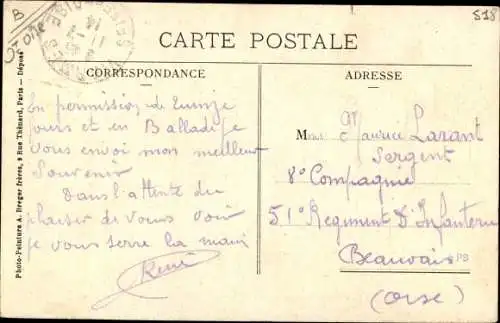 B
Oise
S18
CARTE POSTALE
CORRESPONDANCE
En permission de
jours et en Balladi je
vous envoi mon meilleur
Souvenir
Dans l'attente du
plaisir de vous voir
je vous serre la main
René
ADRESSE
Maurice Larant
Sergent
8° Compagnie
51° Regiment D'Infanterie
Beauvais
(Oise)
Photo-Peinture A. Breger frères, 9 Rue Thénard, Paris — Déposé